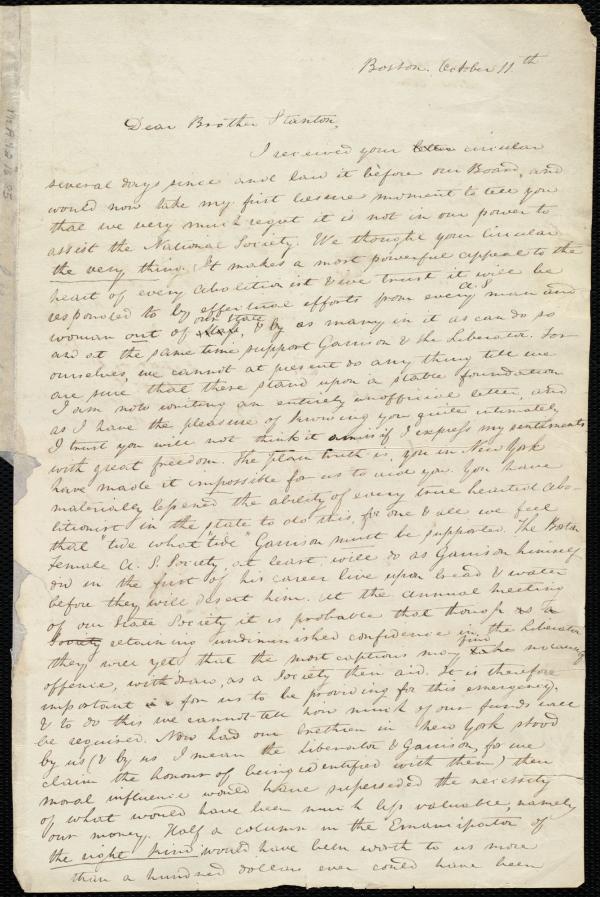 Boston. October 11th
Dear Brother Stanton,
I received your circular
several days since and laid it before our Board, and
would now take my first leisure moment to tell you
that we very much regret it is not in our power to
assist the National Society. We thought your Circular
the very thing. It makes a most powerful appeal to the
heart of every abolitionist & we trust it will be
responded to by effectual efforts from every A. S. man and
woman out of our State, & by as many in it as can do so
and at the same time support Garrison & the Liberator. For
ourselves, we cannot at present do any thing till we
are sure that these stand upon a stable foundation
I am now writing an entirely unofficial letter, and
as I have the pleasure of knowing you quite intimately
I trust you will not think it amiss if I express my sentiments
with great freedom. The plain truth is, you in New York
have made it impossible for us to aid you. You have
materially lessened the ability of every true hearted abo-
litionist in the state to do this, for one & all we feel
that "tide what tide" Garrison must be supported. The Boston
Female A. S. Society, at least, will do as Garrison himself
did in the first of his career live upon bread & water
before they will desert him. At the annual meeting
of our State Society it is probable that though
Society retaining undiminished confidence in the Liberator
they will yet that the most captious may find no
offence, withdraw, as a Society their aid. It is therefore
important for us to be providing for this emergency,
& to do this we cannot tell how much of our funds will
be required. Now had our brethren in New York stood
by us (& by us I mean the Liberator & Garrison, for we
claim the honour of being identified with them) their
moral influence would have superseded the necessity
of what would have been much less valuable, namely
our money. Half a column in the Emancipator of
the right kind would have been worth to us more
than a hundred dollars ever could have been